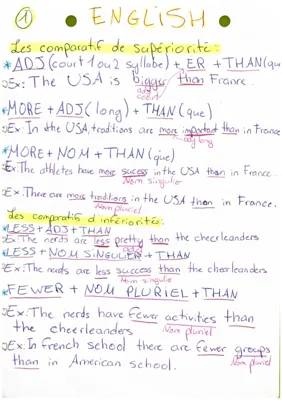 ① • ENGLISH •
Les comparatif de supériorité:
*ADJ(court 1 ou 2 syllabe) + ER + THAN(que
⇒Ex: The USA is bigger than France.
adj court
*MORE + ADJ(long) + THAN(que)
⇒Ex: In the USA, traditions are more important than in France
adj long
*MORE + NOM + THAN(que)
⇒Ex: The athletes have more success in the USA than in France.
Nom singulier
⇒Ex: There are more traditions in the USA than in France.
Nom pluriel
Les comparatifs d'infériorités:
*LESS + ADJ + THAN
⇒Ex: The nerds are less pretty than the cheerleanders
adj
*LESS + NOM SINGULIER + THAN
⇒Ex: The nerds are less success than the cheerleanders
Nom singulie
*FEWER + NOM PLURIEL + THAN
⇒Ex: The nerds have fewer activities than
the cheerleanders
Nom pluriel
⇒Ex: In French school there are fewer groups
than in American school.
Nom pluriel